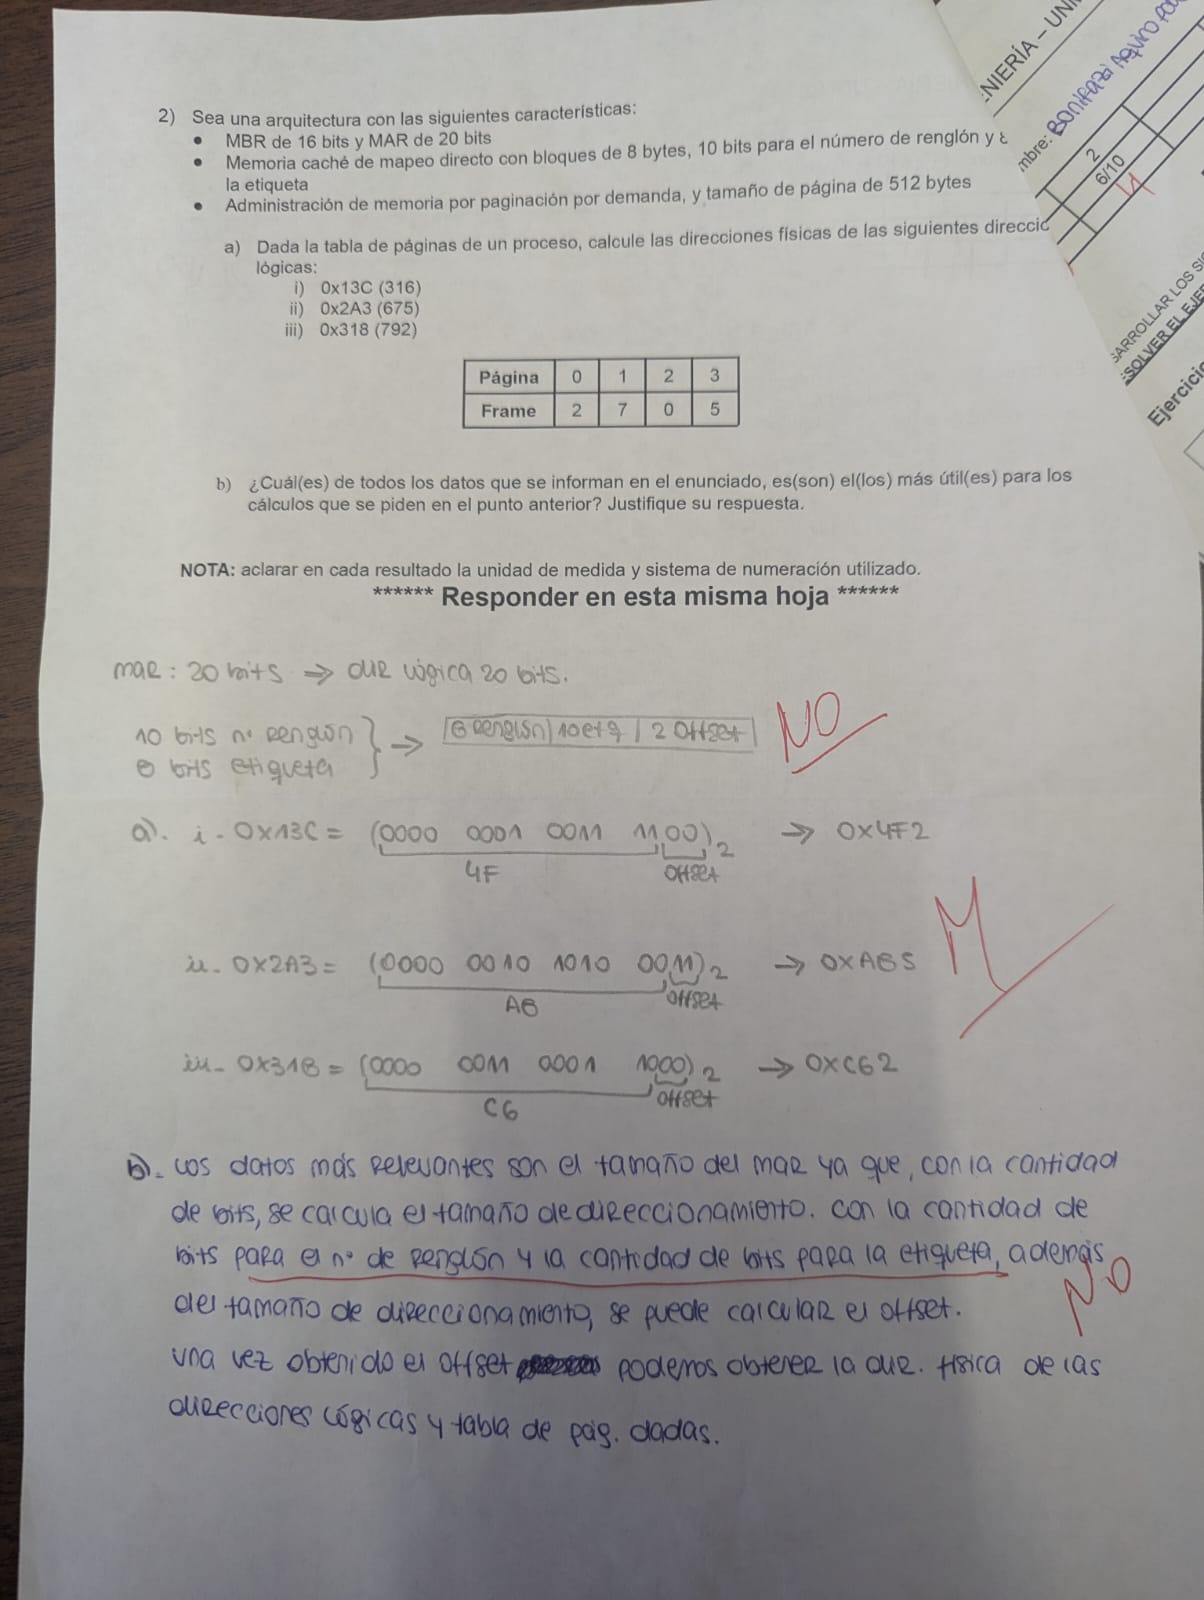 NIERÍA – UNI
mbre: Bonifazi Aquino
2
6/10
M
SARROLLAR LOS SI
ESOLVER EL EJER
Ejercicio
2) Sea una arquitectura con las siguientes características:
• MBR de 16 bits y MAR de 20 bits
• Memoria caché de mapeo directo con bloques de 8 bytes, 10 bits para el número de renglón y 8
la etiqueta
• Administración de memoria por paginación por demanda, y tamaño de página de 512 bytes
a) Dada la tabla de páginas de un proceso, calcule las direcciones físicas de las siguientes direccio
lógicas:
i) 0x13C (316)
ii) 0x2A3 (675)
iii) 0x318 (792)
Página 0 1 2 3
Frame 2 7 0 5
b) ¿Cuál(es) de todos los datos que se informan en el enunciado, es(son) el(los) más útil(es) para los
cálculos que se piden en el punto anterior? Justifique su respuesta.
NOTA: aclarar en cada resultado la unidad de medida y sistema de numeración utilizado.
****** Responder en esta misma hoja ******
MAR: 20 bits → DIR lógica 20 bits.
10 bits n° Renglón } → | 8 Renglón | 10 etq | 2 Offset | NO
8 bits etiqueta
a). i - 0x13C = (0000 0001 0011 1100)2 → 0x4F2
4F offset
ii - 0x2A3 = (0000 0010 1010 0011)2 → 0xA85 M
A8 offset
iii - 0x318 = (0000 0011 0001 1000)2 → 0xC62
C6 offset
b). Los datos más Relevantes son el tamaño del MAR ya que, con la cantidad
de bits, se calcula el tamaño de direccionamiento. Con la cantidad de
bits para el n° de Renglón y la cantidad de bits para la etiqueta, además
NO
del tamaño de direccionamiento, se puede calcular el offset.
Una vez obtenido el offset podemos obtener la DIR. física de las
direcciones lógicas y tabla de pág. dadas.